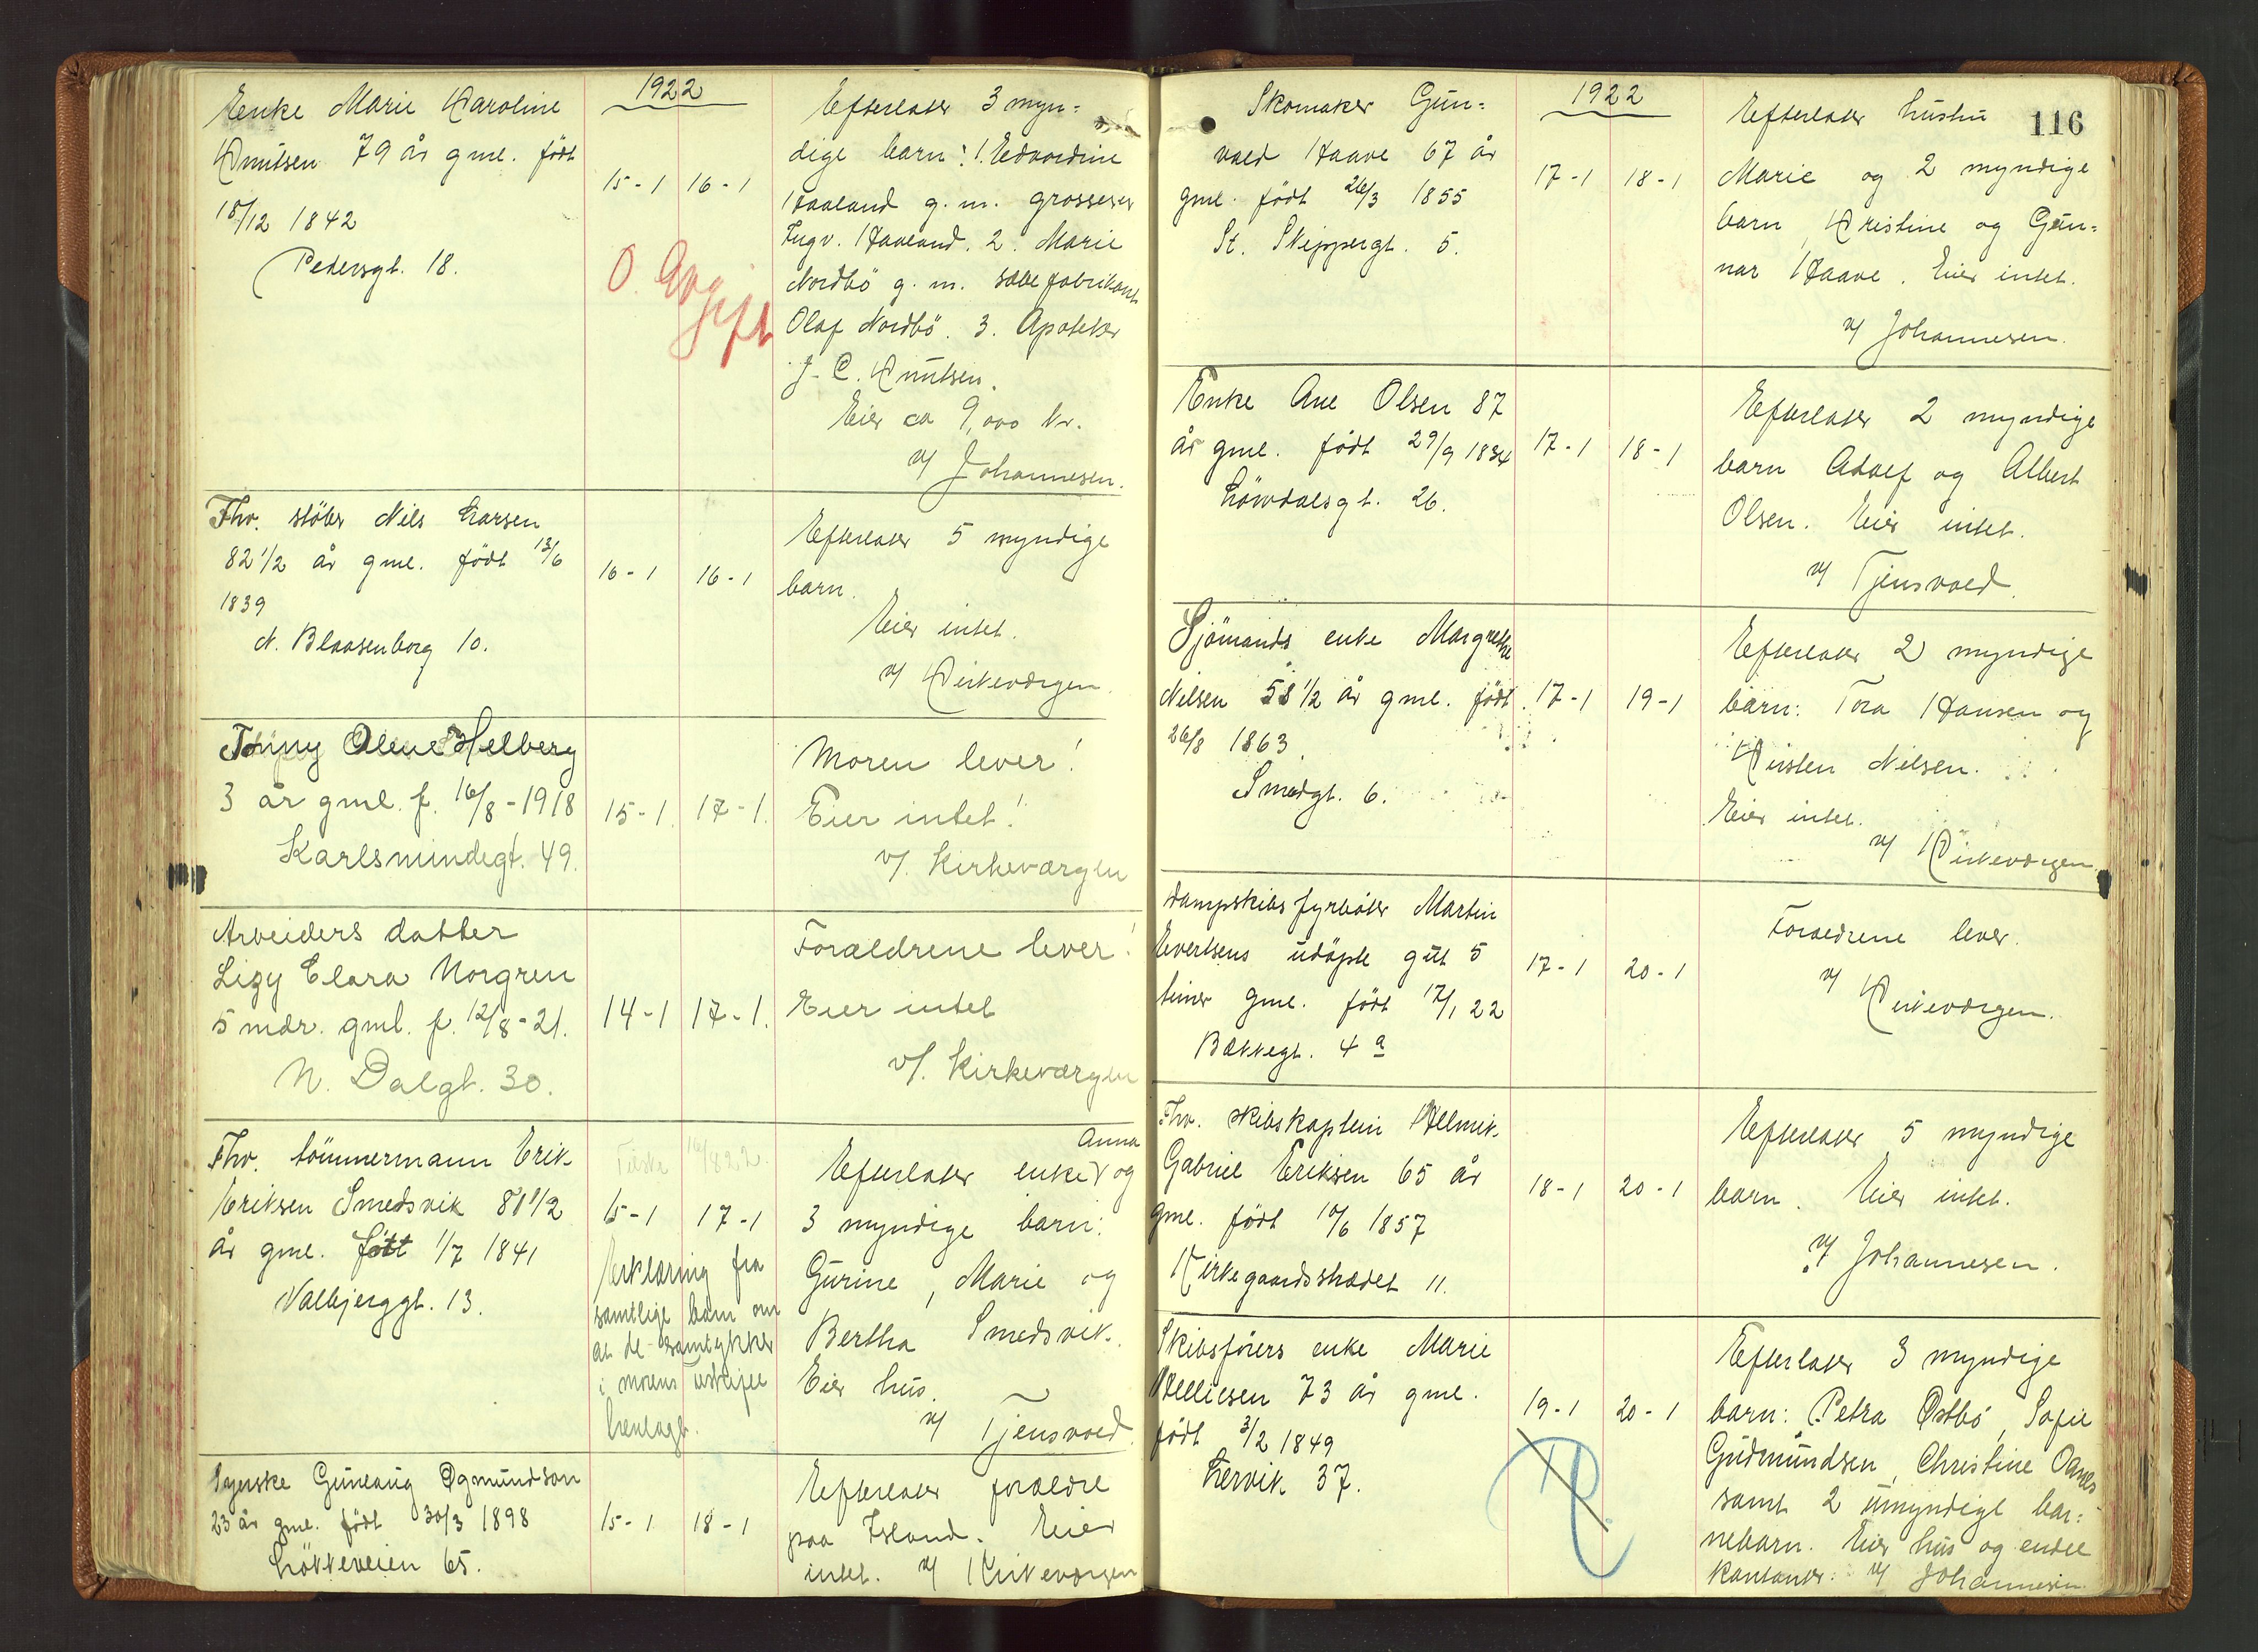 1922
Enke Marie Karoline
Knutsen 79 år gml. født
18/12 1842
Pedersgt. 18.
15-1 16-1
O. Avgift
Efterlater 3 myn-
dige barn: 1. Edvardine
Haaland g. m. grosserer
Ingv. Haaland. 2. Marie
Nordbö g. m. fabrikant
Olaf Nordbö. 3. Apoteker
J. C. Knutsen.
Eier ca 9,000 kr.
v/ Johannesen.
Fhv. støber Nils Larsen
82 1/2 år gml. født 13/6
1839
N. Blaasenborg 10.
16-1 16-1
Efterlater 5 myndige
barn.
Eier intet.
v/ Kirkeværgen.
Olene Helberg
3 år gml. f. 16/8-1918
Karlsmindegt. 49.
15-1. 17-1.
Moren lever!
Eier intet!
v/. Kirkeværgen
Arbeiders datter
Lizy Clara Norgren
5 mdr. gml. f. 12/8-21.
N. Dalgt. 30.
14-1 17-1.
Forældrene lever!
Eier intet
v/. Kirkeværgen
Fhv. tömmermann Erik
Eriksen Smedsvik 80 1/2
år gml. født 1/7 1841
Valbjerggt. 13.
15-1 17-1
Erklæring fra
samtlige barn om
at de samtykker
i morens uskifte
henlagt.
Anna
Efterlater enke og
3 myndige barn:
Gurine, Marie og
Bertha Smedsvik.
Eier hus.
v/ Tjensvold
Gunlaug Øgmundson
23 år gml. født 30/3 1898
Løkkeveien 65.
15-1 18-1
Efterlater forældre
paa Island. Eier
intet. v/ Kirkeværgen
116
1922
Skomaker Gun-
vald Haave 67 år
gml. født 26/3 1855
St. Skippergt. 5.
17-1 18-1
Efterlater hustru
Marie og 2 myndige
barn, Kristine og Gun-
nar Haave. Eier intet.
v/ Johannesen.
Enke Ane Olsen 87
år gml. født 29/9 1834
Lövdalsgt. 26.
17-1 18-1
Efterlater 2 myndige
barn Adolf og Albert
Olsen. Eier intet.
v/ Tjensvold.
Sjömands enke Margrethe
Nilsen 58 1/2 år gml. født
26/8 1863.
Smedgt. 6.
17-1 19-1
Efterlater 2 myndige
barn: Tora Hansen og
Kirsten Nilsen.
Eier intet.
v/ Kirkeværgen.
Dampskibs fyrbøter Martin
Evertsens udøpte gut 5
timer gml. født 17/1 22
Bækkegt. 4 a
17-1 20-1
Forældrene lever.
v/ Kirkeværgen.
Fhv. skibskaptein Helmik
Gabriel Eriksen 65 år
gml. født 10/6 1857
Kirkegaardsstrædet 11.
18-1 20-1
Efterlater 5 myndige
barn. Eier intet.
v/ Johannesen.
Skibsførers enke Marie
Helliesen 73 år gml.
født 3/2 1849
Lervik 37.
19-1 20-1
Efterlater 3 myndige
barn: Petra Østbö, Sofie
Gudmundsen, Christine Oanes
samt 2 umyndige bar-
nebarn. Eier hus og endel
kontanter. v/ Johannesen